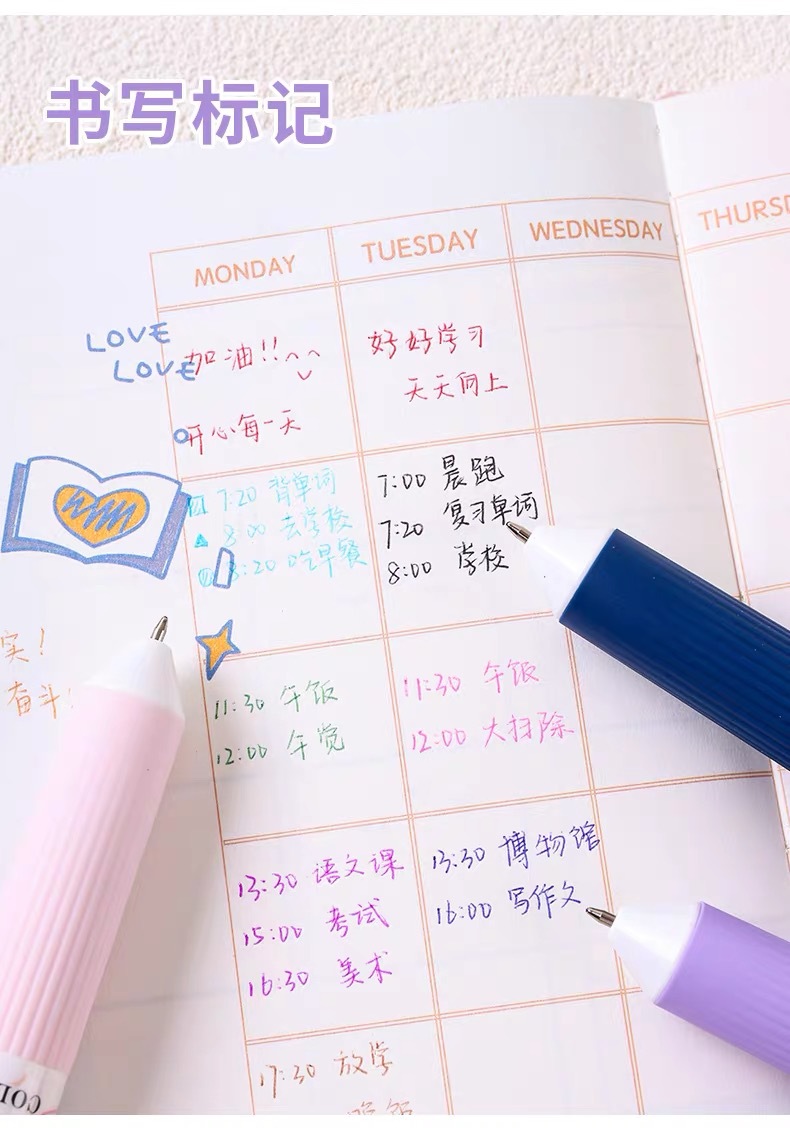 书写标记
MONDAY
TUESDAY
WEDNESDAY
THURSD
LOVE
LOVE
加油!!
开心每一天
好好学习
天天向上
7:20 背单词
8:00 去学校
8:20 吃早餐
7:00 晨跑
7:20 复习单词
8:00 学校
实!
奋斗!
11:30 午饭
12:00 午觉
11:30 午饭
12:00 大扫除
13:30 语文课
15:00 考试
16:30 美术
13:30 博物馆
16:00 写作文
17:30 放学